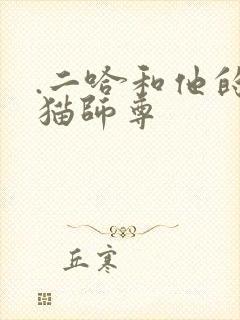 .二哈和他的
猫師尊
丘寒